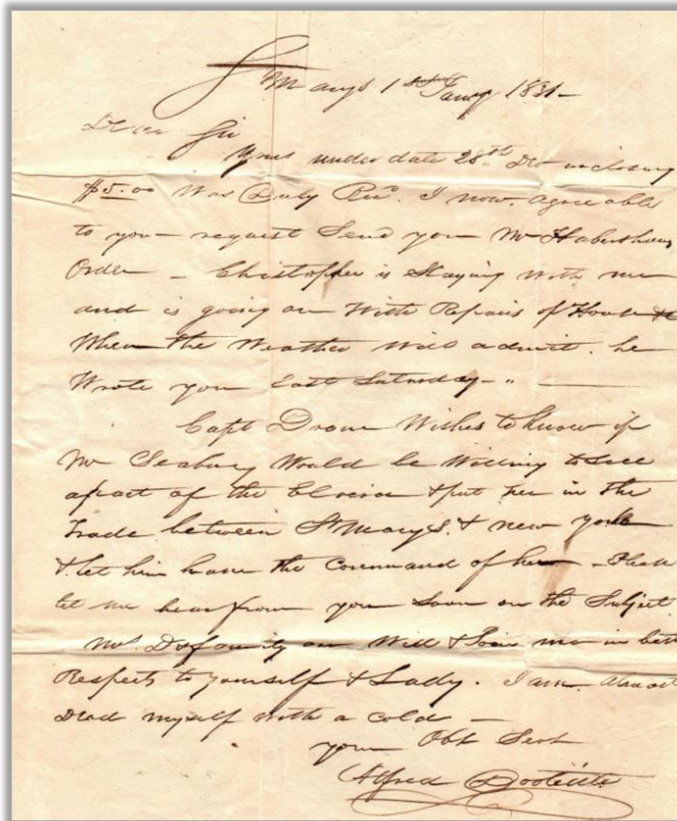 St Marys 1st Jany 1831-
Dear Sir
Yours under date 28th Dec inclosing
$5.00 Was Duly Recd. I now, agreeable
to your request Send you Mr Habershams
Order - Christopher is Staying with me
and is going on With Repairs of House &c
When the Weather Will admit. he
Wrote you Last Saturday - " -
Capt Drone Wishes to know if
Mr Seabury Would be Willing to Sell
apart of the Elvira & put her in the
trade between St Marys. & new york
& let him have the Command of her - Please
let me hear from you Soon on the Subject.
Mrs. D & family are Well & Join me in best
Respects to yourself & Lady. I am almost
Dead myself with a cold -
your Obt Servt
Alfred